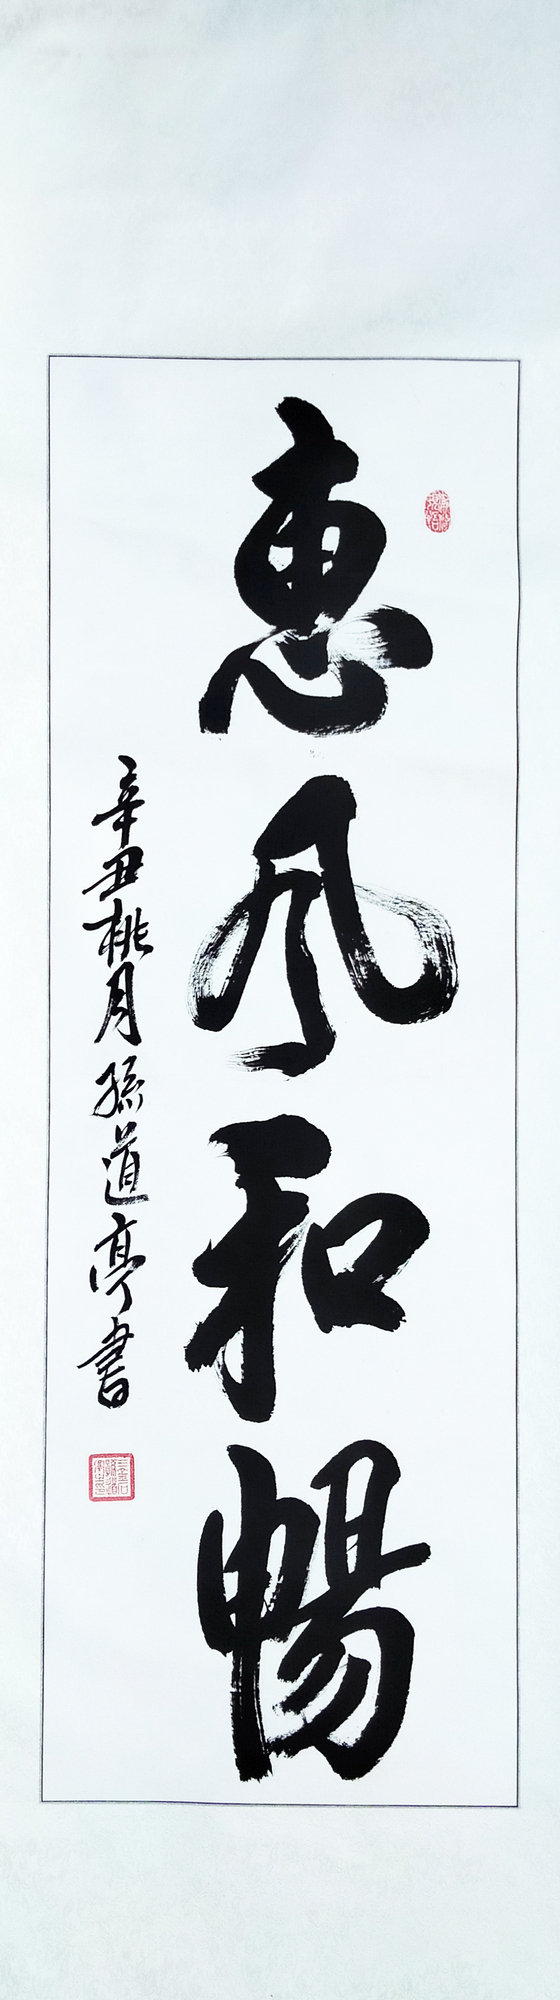 惠风和暢
辛丑桃月孫道亭書